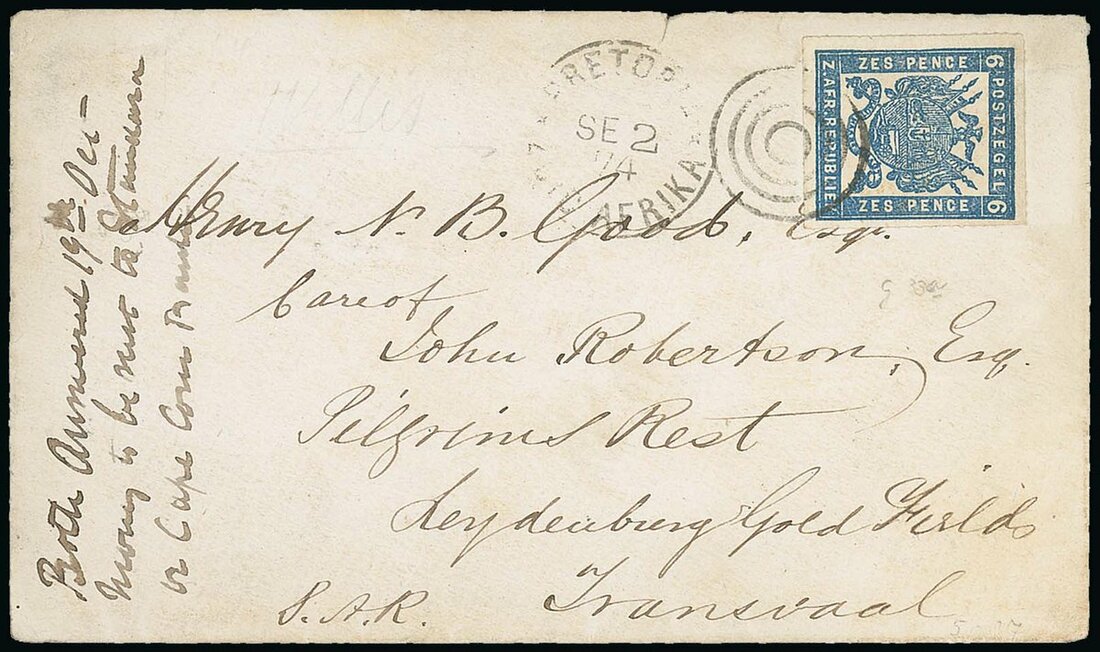 PRETORIA
SE 2
74
Z. AFRIKA
ZES PENCE
6 POSTZEGEL 6
Z. AFR. REPUBLIEK
ZES PENCE
Henry N. B. Good, Esqr.
Care of
John Robertson, Esq.
Pilgrims Rest
Leydenburg Gold Fields
Transvaal
S. A. R.
Both Answered 19th Oct –
Money to be sent to
or Cape Com Bank